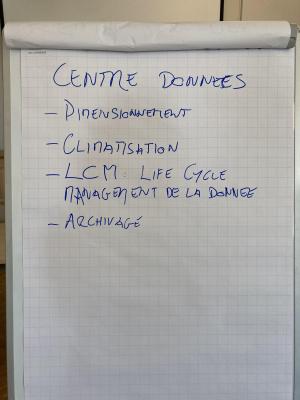 CENTRE DONNEES
- DIMENSIONNEMENT
- CLIMATISATION
- LCM : LIFE CYCLE
MANAGEMENT DE LA DONNEE
- ARCHIVAGE